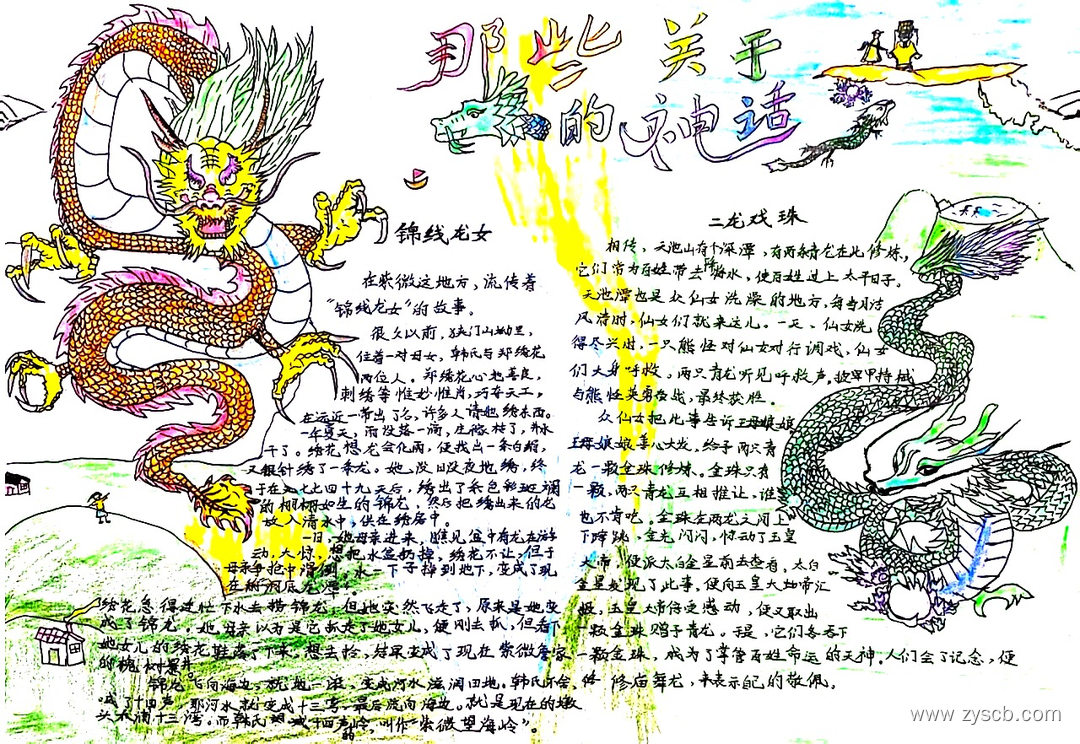 那些关于
的神话
锦线龙女
在紫微这地方，流传着
"锦线龙女"的故事。
很久以前，狭门山坳里，
住着一对母女，韩氏与郑绣花
两位人。郑绣花心地善良，
刺绣等惟妙惟肖，巧夺天工，
在远近一带出了名，许多人请她绣东西。
一年夏天，雨没落一滴，庄稼枯了，井水
干了。绣花想龙会化雨，便找出一条白绢，
又银针绣了一条龙。她日没夜地绣，终
于在九七七四十九天后，绣出了条色彩斑斓
的栩栩如生的锦龙，然后把绣出来的龙
放入清水中，供在绣房中。
一日，她母亲进来，瞧见盆中有龙在游
动，大惊，想把水盆扔掉。绣花不让，但于
母亲争抢中滑倒，水一下子掉到地下，变成了现
绣花急得连忙下水去捞锦龙，但她突然飞走了，原来是她变
成了锦龙。她母亲以为是它抓走了她女儿，便刚去抓，但看下
她女儿的绣花鞋落了下来，想去捡，结果变成了现在紫微唐家
的槐树景井。
锦龙飞向海边，就地一滚，变成河水滋润田地。韩氏不舍，
喊了十四声，那河水就变成十三弯，最后流向海边。就是现在的墩
头木滴十三湾，而韩氏喊十四声的岭，叫作"紫微望海岭"。
二龙戏珠
相传，天池山有个深潭，有两条青龙在此修炼，
它们常为百姓带去降海水，使百姓过上太平日子。
天池潭也是众仙女洗澡的地方，每当月洁
风清时，仙女们就来这儿。一天，仙女洗
得尽兴时，一只熊怪对仙女对行调戏，仙女
们大声呼救，两只青龙听见呼救声，披甲持械
与熊怪英勇奋战，最终获胜。
众仙女把此事告诉王母娘娘，
王母娘娘善心大发，给予两只青
龙一颗金珠修炼。金珠只有
一颗，两只青龙互相推让，谁
也不肯吃。金珠在两龙之间上
下蹿跳，金光闪闪，惊动了玉皇
大帝，便派太白金星前去查看，太白
金星发现了此事，便向玉皇大地帝汇
报，玉皇大帝倍受感动，便又取出
一颗金珠赠予青龙。于是，它们各吞下
一颗金珠，成为了掌管百姓命运的天神。人们会了记念，便
修庙舞龙，来表示自己的敬佩。
www.zyscb.com